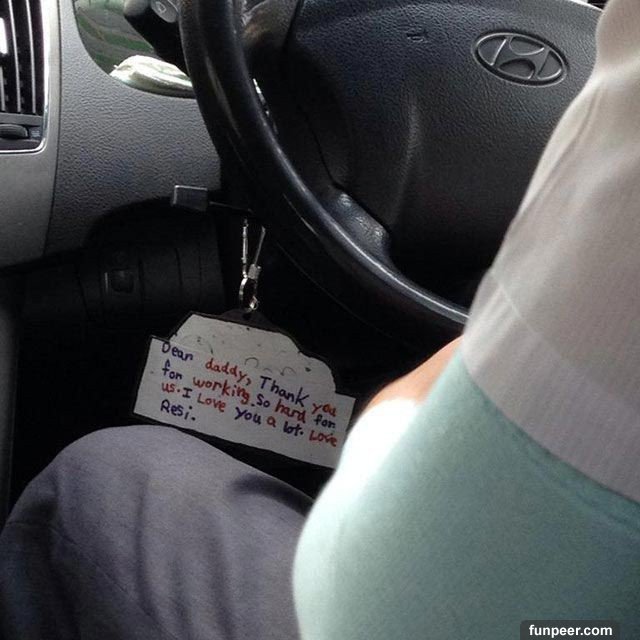 Dear daddy, Thank you
for working so hard for
us. I Love you a lot. Love
Resi.
funpeer.com